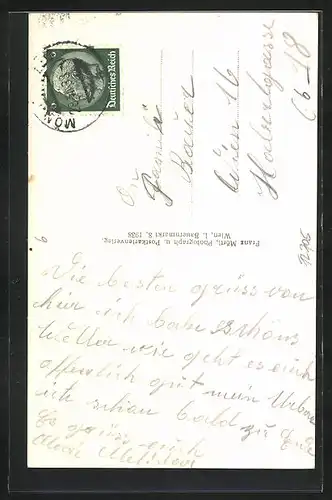 Deutsches Reich
6
MÖN
An
Familie
Bauer
Wien 16
Haberlgasse
66-18
Franz Mörtl, Photograph u. Postkartenverlag,
Wien, I. Bauernmarkt 3. 1938
Die besten grüss von
hier ich habe schöns
Wetter wie geht es euch
offendlich gut mein Urban
ich schon bald zu Ende
Es grüss euch